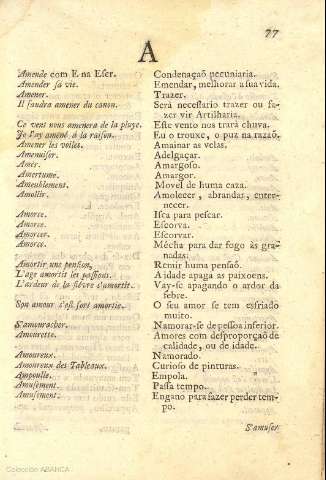 77
A
Amende com E na Eser. Condenaçaõ pecuniaria.
Amender sa vie. Emendar, melhorar a sua vida.
Amener. Trazer.
Il faudra amener du canon. Será necessario trazer ou fa-
zer vir Artilharia.
Ce vent nous amenera de la pluye. Este vento nos trará chuva.
Je l'ay amené à la raison. Eu o trouxe, o puz na razaõ.
Amener les voiles. Amainar as velas.
Amenuiser. Adelgaçar.
Amer. Amargoso.
Amertume. Amargor.
Ameublement. Movel de huma caza.
Amollir. Amolecer, abrandar, enter-
necer.
Amorce. Isca para pescar.
Amorce. Escorva.
Amorcer. Escorvar.
Amorce. Mécha para dar fogo ás gra-
nadas.
Amortir une pension. Remir huma pensaõ.
L'age amortit les passions. A idade apaga as paixoens.
L'ardeur de la fiévre s'amortit. Vay-se apagando o ardor da
febre.
Son amour s'est fort amortie. O seu amor se tem esfriado
muito.
S'amouracher. Namorar-se de pessoa inferior.
Amourette. Amores com desproporçaõ de
calidade, ou de idade.
Amoureux. Namorado.
Amoureux des Tableaux. Curioso de pinturas.
Ampoulle. Empola.
Amusement. Passa tempo.
Amusement. Engano para fazer perder tem-
po.
S'amuser
Colección ABANCA